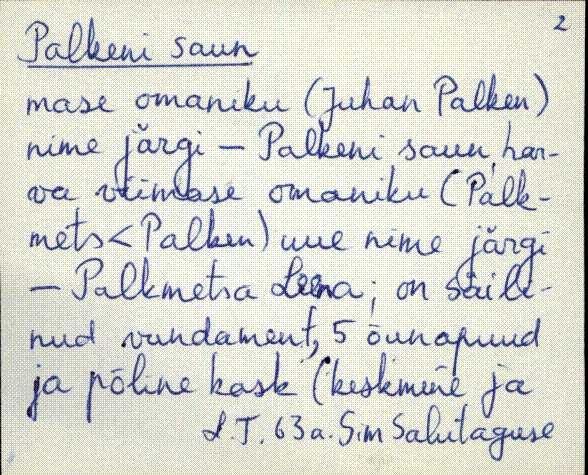 2
Palkeni saun
mase omaniku (Juhan Palken)
nime järgi – Palkeni saun, har-
va viimase omaniku (Palk-
mets < Palken) uue nime järgi
– Palkmetsa Leena; on säili-
nud vundament, 5 õunapuud
ja põline kask (keskmine ja
S.T. 63 a. Sim Salutaguse